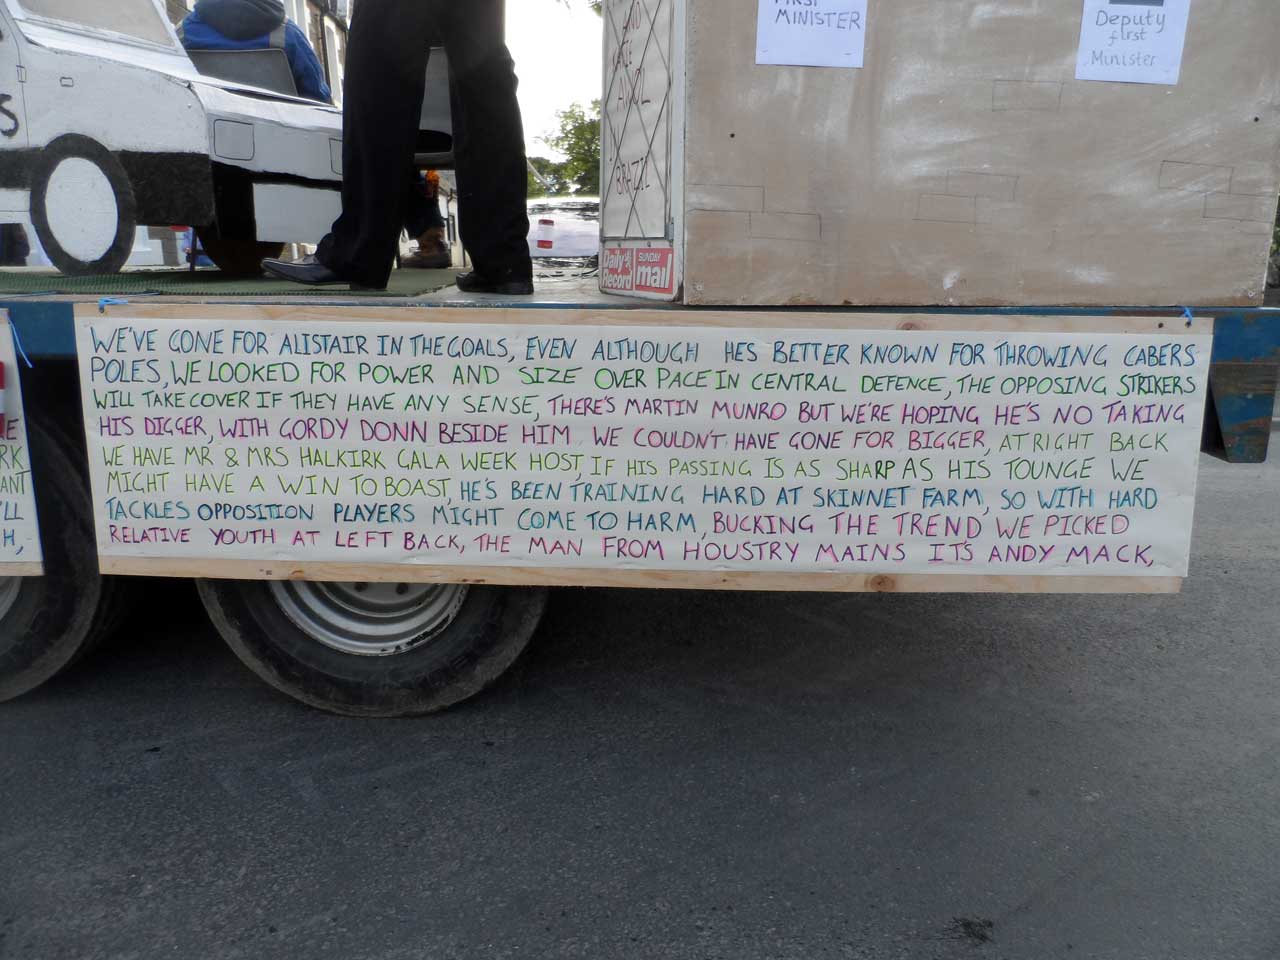 FIRST
MINISTER
Deputy
first
Minister
BRAZIL
Daily Record
SUNDAY mail
WE'VE GONE FOR ALISTAIR IN THE GOALS, EVEN ALTHOUGH HES BETTER KNOWN FOR THROWING CABERS
POLES, WE LOOKED FOR POWER AND SIZE OVER PACE IN CENTRAL DEFENCE, THE OPPOSING STRIKERS
WILL TAKE COVER IF THEY HAVE ANY SENSE, THERE'S MARTIN MUNRO BUT WE'RE HOPING HE'S NO TAKING
HIS DIGGER, WITH GORDY DONN BESIDE HIM WE COULDN'T HAVE GONE FOR BIGGER, AT RIGHT BACK
WE HAVE MR & MRS HALKIRK GALA WEEK HOST, IF HIS PASSING IS AS SHARP AS HIS TOUNGE WE
MIGHT HAVE A WIN TO BOAST, HE'S BEEN TRAINING HARD AT SKINNET FARM, SO WITH HARD
TACKLES OPPOSITION PLAYERS MIGHT COME TO HARM, BUCKING THE TREND WE PICKED
RELATIVE YOUTH AT LEFT BACK, THE MAN FROM HOUSTRY MAINS IT'S ANDY MACK,